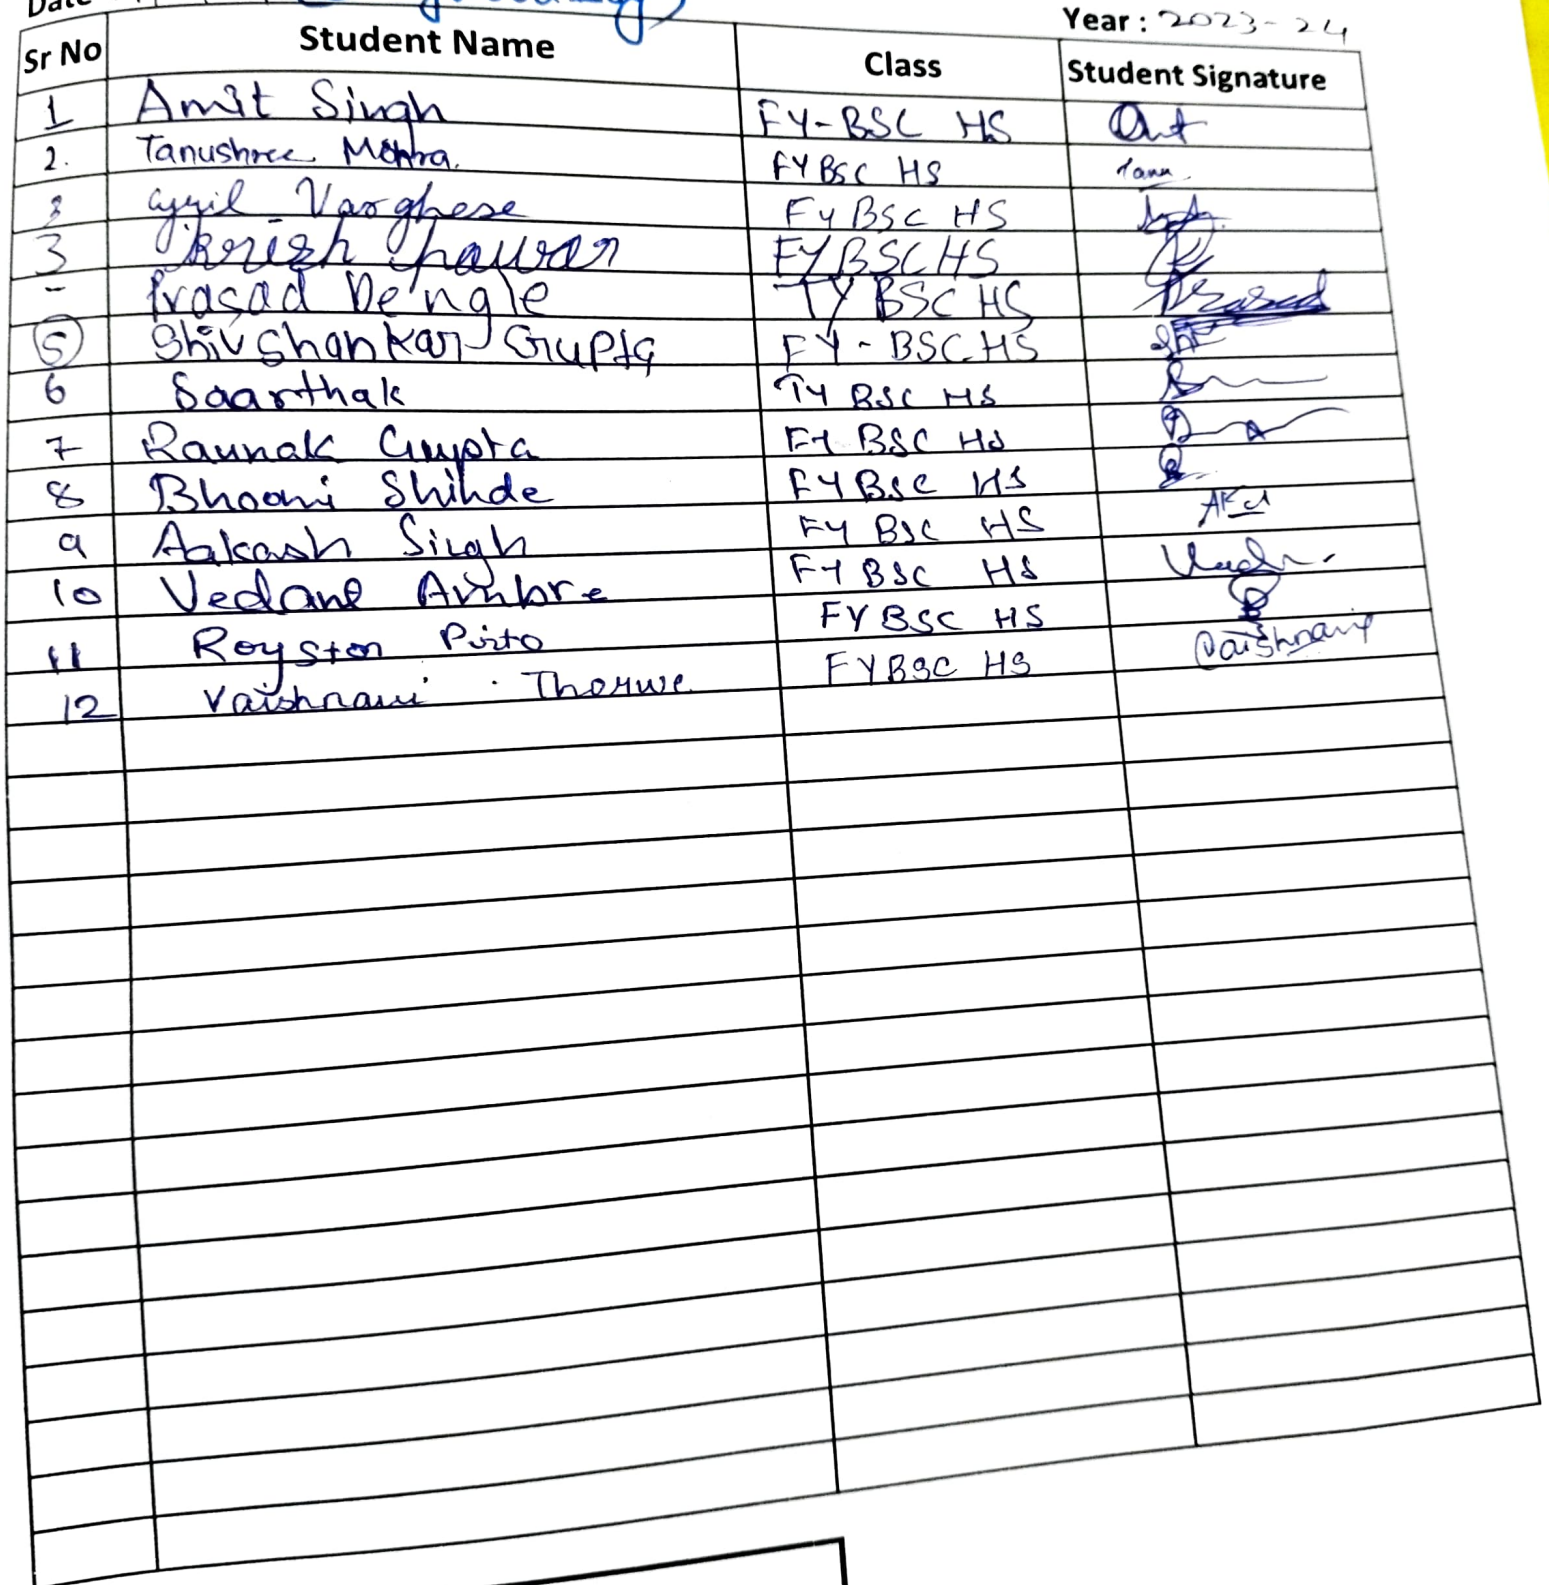 Date
Year : 2023-24
Sr No Student Name Class Student Signature
1 Amit Singh FY-BSC HS
2. Tanushree Mehra. FYBSC HS Tanu
3 Cyril Varghese FYBSC HS
3 Krish Pawar FYBSC HS
- Prasad Dengle TYBSC HS Prasad
5 Shivshankar Gupta FY-BSC.HS
6 Saarthak TY BSC HS
7 Raunak Gupta FY BSC HS
8 Bhoomi Shinde FYBSC HS
9 Aakash Singh FY BSC HS
10 Vedant Ambre FY BSC HS
11 Royston Pinto FYBSC HS
12 Vaishnavi Thorwe FYBSC HS Vaishnavi